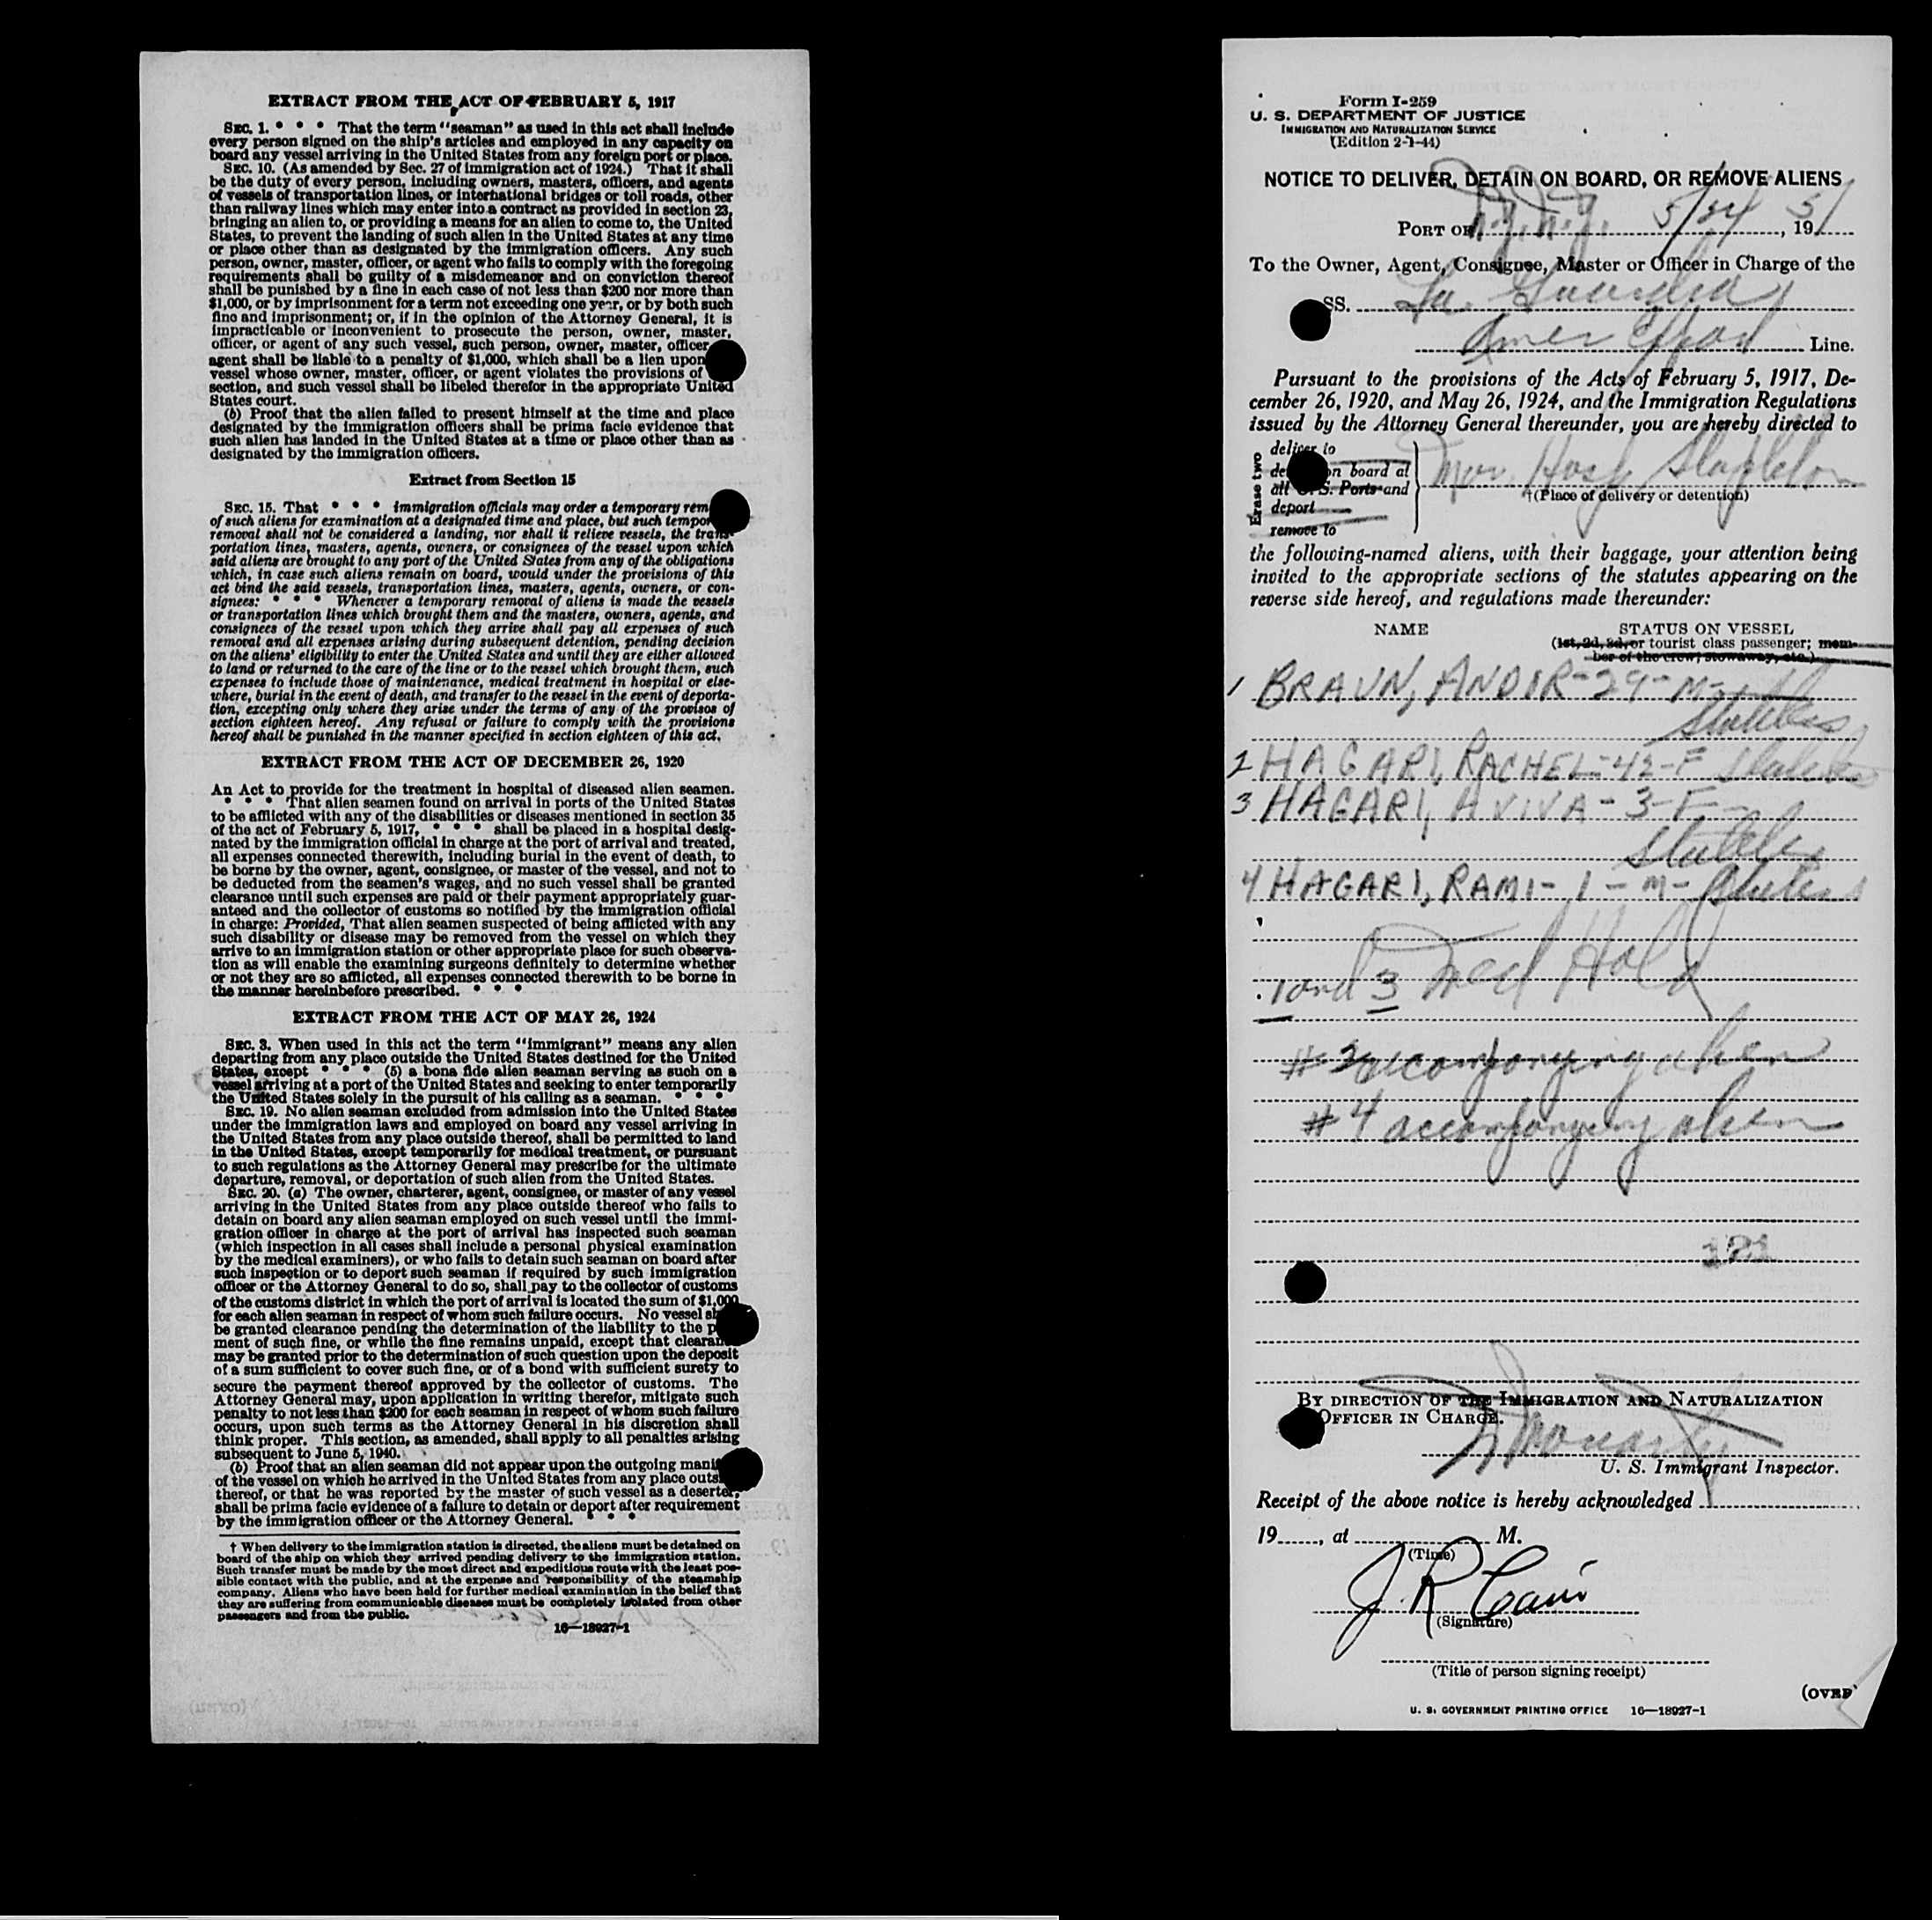 EXTRACT FROM THE ACT OF FEBRUARY 5, 1917
SEC. 1. * * * That the term "seaman" as used in this act shall include
every person signed on the ship's articles and employed in any capacity on
board any vessel arriving in the United States from any foreign port or place.
SEC. 10. (As amended by Sec. 27 of immigration act of 1924.) That it shall
be the duty of every person, including owners, masters, officers, and agents
of vessels of transportation lines, or international bridges or toll roads, other
than railway lines which may enter into a contract as provided in section 23,
bringing an alien to, or providing a means for an alien to come to, the United
States, to prevent the landing of such alien in the United States at any time
or place other than as designated by the immigration officers. Any such
person, owner, master, officer, or agent who fails to comply with the foregoing
requirements shall be guilty of a misdemeanor and on conviction thereof
shall be punished by a fine in each case of not less than $200 nor more than
$1,000, or by imprisonment for a term not exceeding one year, or by both such
fine and imprisonment; or, if in the opinion of the Attorney General, it is
impracticable or inconvenient to prosecute the person, owner, master,
officer, or agent of any such vessel, such person, owner, master, officer
agent shall be liable to a penalty of $1,000, which shall be a lien upon
vessel whose owner, master, officer, or agent violates the provisions of
section, and such vessel shall be libeled therefor in the appropriate United
States court.
(b) Proof that the alien failed to present himself at the time and place
designated by the immigration officers shall be prima facie evidence that
such alien has landed in the United States at a time or place other than as
designated by the immigration officers.
Extract from Section 15
SEC. 15. That * * * immigration officials may order a temporary rem
of such aliens for examination at a designated time and place, but such tempor
removal shall not be considered a landing, nor shall it relieve vessels, the trans-
portation lines, masters, agents, owners, or consignees of the vessel upon which
said aliens are brought to any port of the United States from any of the obligations
which, in case such aliens remain on board, would under the provisions of this
act bind the said vessels, transportation lines, masters, agents, owners, or con-
signees: * * * Whenever a temporary removal of aliens is made the vessels
or transportation lines which brought them and the masters, owners, agents, and
consignees of the vessel upon which they arrive shall pay all expenses of such
removal and all expenses arising during subsequent detention, pending decision
on the aliens' eligibility to enter the United States and until they are either allowed
to land or returned to the care of the line or to the vessel which brought them, such
expenses to include those of maintenance, medical treatment in hospital or else-
where, burial in the event of death, and transfer to the vessel in the event of deporta-
tion, excepting only where they arise under the terms of any of the provisos of
section eighteen hereof. Any refusal or failure to comply with the provisions
hereof shall be punished in the manner specified in section eighteen of this act.
EXTRACT FROM THE ACT OF DECEMBER 26, 1920
An Act to provide for the treatment in hospital of diseased alien seamen.
* * * That alien seamen found on arrival in ports of the United States
to be afflicted with any of the disabilities or diseases mentioned in section 35
of the act of February 5, 1917, * * * shall be placed in a hospital desig-
nated by the immigration official in charge at the port of arrival and treated,
all expenses connected therewith, including burial in the event of death, to
be borne by the owner, agent, consignee, or master of the vessel, and not to
be deducted from the seamen's wages, and no such vessel shall be granted
clearance until such expenses are paid or their payment appropriately guar-
anteed and the collector of customs so notified by the immigration official
in charge: Provided, That alien seamen suspected of being afflicted with any
such disability or disease may be removed from the vessel on which they
arrive to an immigration station or other appropriate place for such observa-
tion as will enable the examining surgeons definitely to determine whether
or not they are so afflicted, all expenses connected therewith to be borne in
the manner hereinbefore prescribed. * * *
EXTRACT FROM THE ACT OF MAY 26, 1924
SEC. 3. When used in this act the term "immigrant" means any alien
departing from any place outside the United States destined for the United
States, except * * * (5) a bona fide alien seaman serving as such on a
vessel arriving at a port of the United States and seeking to enter temporarily
the United States solely in the pursuit of his calling as a seaman. * * *
SEC. 19. No alien seaman excluded from admission into the United States
under the immigration laws and employed on board any vessel arriving in
the United States from any place outside thereof, shall be permitted to land
in the United States, except temporarily for medical treatment, or pursuant
to such regulations as the Attorney General may prescribe for the ultimate
departure, removal, or deportation of such alien from the United States.
SEC. 20. (a) The owner, charterer, agent, consignee, or master of any vessel
arriving in the United States from any place outside thereof who fails to
detain on board any alien seaman employed on such vessel until the immi-
gration officer in charge at the port of arrival has inspected such seaman
(which inspection in all cases shall include a personal physical examination
by the medical examiners), or who fails to detain such seaman on board after
such inspection or to deport such seaman if required by such immigration
officer or the Attorney General to do so, shall pay to the collector of customs
of the customs district in which the port of arrival is located the sum of $1,000
for each alien seaman in respect of whom such failure occurs. No vessel sh
be granted clearance pending the determination of the liability to the p
ment of such fine, or while the fine remains unpaid, except that clearan
may be granted prior to the determination of such question upon the deposit
of a sum sufficient to cover such fine, or of a bond with sufficient surety to
secure the payment thereof approved by the collector of customs. The
Attorney General may, upon application in writing therefor, mitigate such
penalty to not less than $200 for each seaman in respect of whom such failure
occurs, upon such terms as the Attorney General in his discretion shall
think proper. This section, as amended, shall apply to all penalties arising
subsequent to June 5, 1940.
(b) Proof that an alien seaman did not appear upon the outgoing mani
of the vessel on which he arrived in the United States from any place outs
thereof, or that he was reported by the master of such vessel as a deserter,
shall be prima facie evidence of a failure to detain or deport after requirement
by the immigration officer or the Attorney General. * * *
† When delivery to the immigration station is directed, the aliens must be detained on
board of the ship on which they arrived pending delivery to the immigration station.
Such transfer must be made by the most direct and expeditious route with the least pos-
sible contact with the public, and at the expense and responsibility of the steamship
company. Aliens who have been held for further medical examination in the belief that
they are suffering from communicable diseases must be completely isolated from other
passengers and from the public.
16—18927-1
Form I-259
U. S. DEPARTMENT OF JUSTICE
IMMIGRATION AND NATURALIZATION SERVICE
(Edition 2-1-44)
NOTICE TO DELIVER, DETAIN ON BOARD, OR REMOVE ALIENS
PORT OF N.Y. N.Y. 5/24, 1951
To the Owner, Agent, Consignee, Master or Officer in Charge of the
SS. La Guardia
Amer Export Line.
Pursuant to the provisions of the Acts of February 5, 1917, De-
cember 26, 1920, and May 26, 1924, and the Immigration Regulations
issued by the Attorney General thereunder, you are hereby directed to
Erase two
deliver to
de on board at
all U.S. Ports and
deport
remove to
Mar. Hosp Stapleton
†(Place of delivery or detention)
the following-named aliens, with their baggage, your attention being
invited to the appropriate sections of the statutes appearing on the
reverse side hereof, and regulations made thereunder:
NAME STATUS ON VESSEL
(1st, 2d, 3d, or tourist class passenger; mem-
ber of the crew; stowaway, etc.)
1 BRAUN, ANDOR-29-M-
Stateless
2 HAGARI, RACHEL-42-F Stateless
3 HAGARI, AVIVA-3-F-
Stateless
4 HAGARI, RAMI-1-M- Stateless
1 and 3 Med Hold
#2 accompanying alien
#4 accompanying alien
121
BY DIRECTION OF THE IMMIGRATION AND NATURALIZATION
OFFICER IN CHARGE.
U. S. Immigrant Inspector.
Receipt of the above notice is hereby acknowledged
19, at M.
(Time)
J. R. Cain
(Signature)
(Title of person signing receipt)
(OVER)
U. S. GOVERNMENT PRINTING OFFICE 16—18927-1